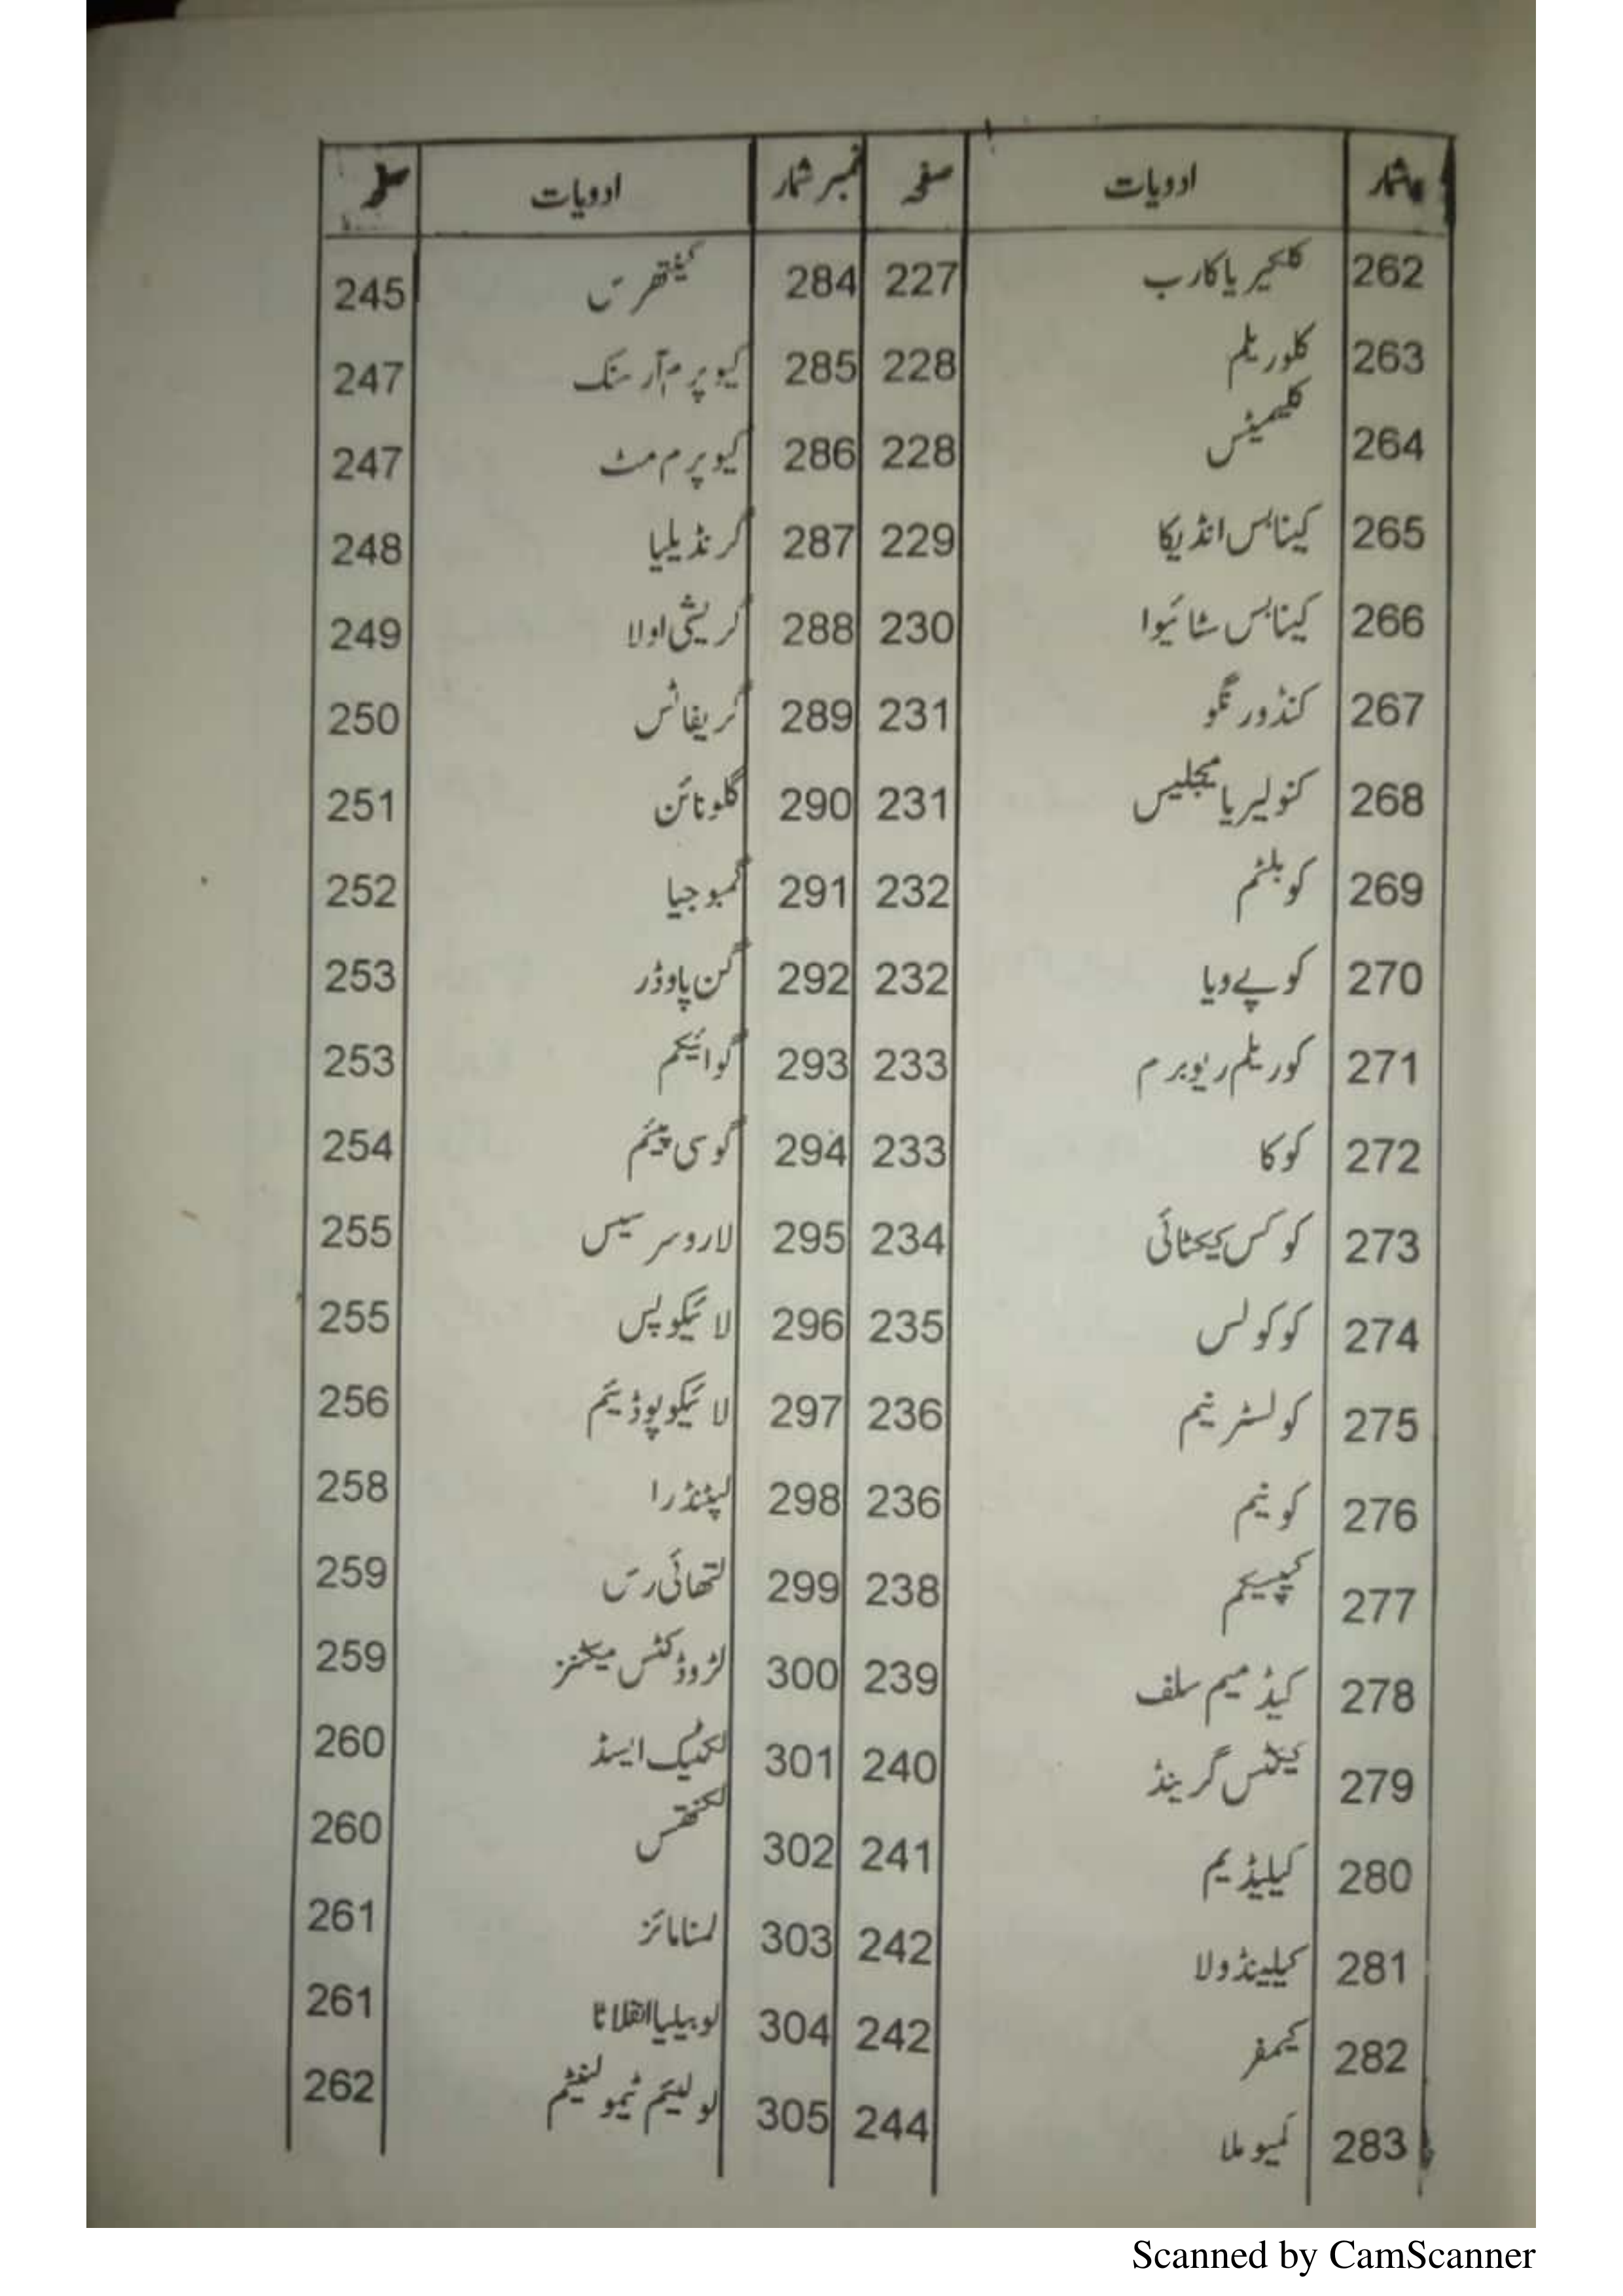 نمبر شمار ادویات صفحہ نمبر شمار ادویات صفحہ
262 کلکیریا کارب 227 284 کینتھرس 245
263 کلوریلم 228 285 کیوپرم آرسنک 247
264 کلیمٹس 228 286 کیوپرم مٹ 247
265 کینابس انڈیکا 229 287 گرنڈیلیا 248
266 کینابس سٹائیوا 230 288 گریشی اولا 249
267 کنڈورنگو 231 289 گریفائٹس 250
268 کنولیریا میجلیس 231 290 گلونائن 251
269 کوبلٹم 232 291 گمبوجیا 252
270 کوپے ویا 232 292 گن پاوڈر 253
271 کوریلم ریوبرم 233 293 گوائیکم 253
272 کوکا 233 294 گوسی پیئم 254
273 کوکس کیکٹائی 234 295 لاروسرسیس 255
274 کوکولس 235 296 لائیکوپس 255
275 کولسٹرینم 236 297 لائیکوپوڈیئم 256
276 کونیم 236 298 لپٹنڈرا 258
277 کیپسیکم 238 299 لتھائی رس 259
278 کیڈمیم سلف 239 300 لٹروڈکٹس میکٹنز 259
279 کیکٹس گرینڈ 240 301 لکٹیک ایسڈ 260
280 کیلیڈیم 241 302 لکنتھس 260
281 کیلینڈولا 242 303 لمنامائنر 261
282 کیمفر 242 304 لوبیلیا انفلاٹا 261
283 کیمومیلا 244 305 لولیئم ٹیمولنٹیم 262
Scanned by CamScanner